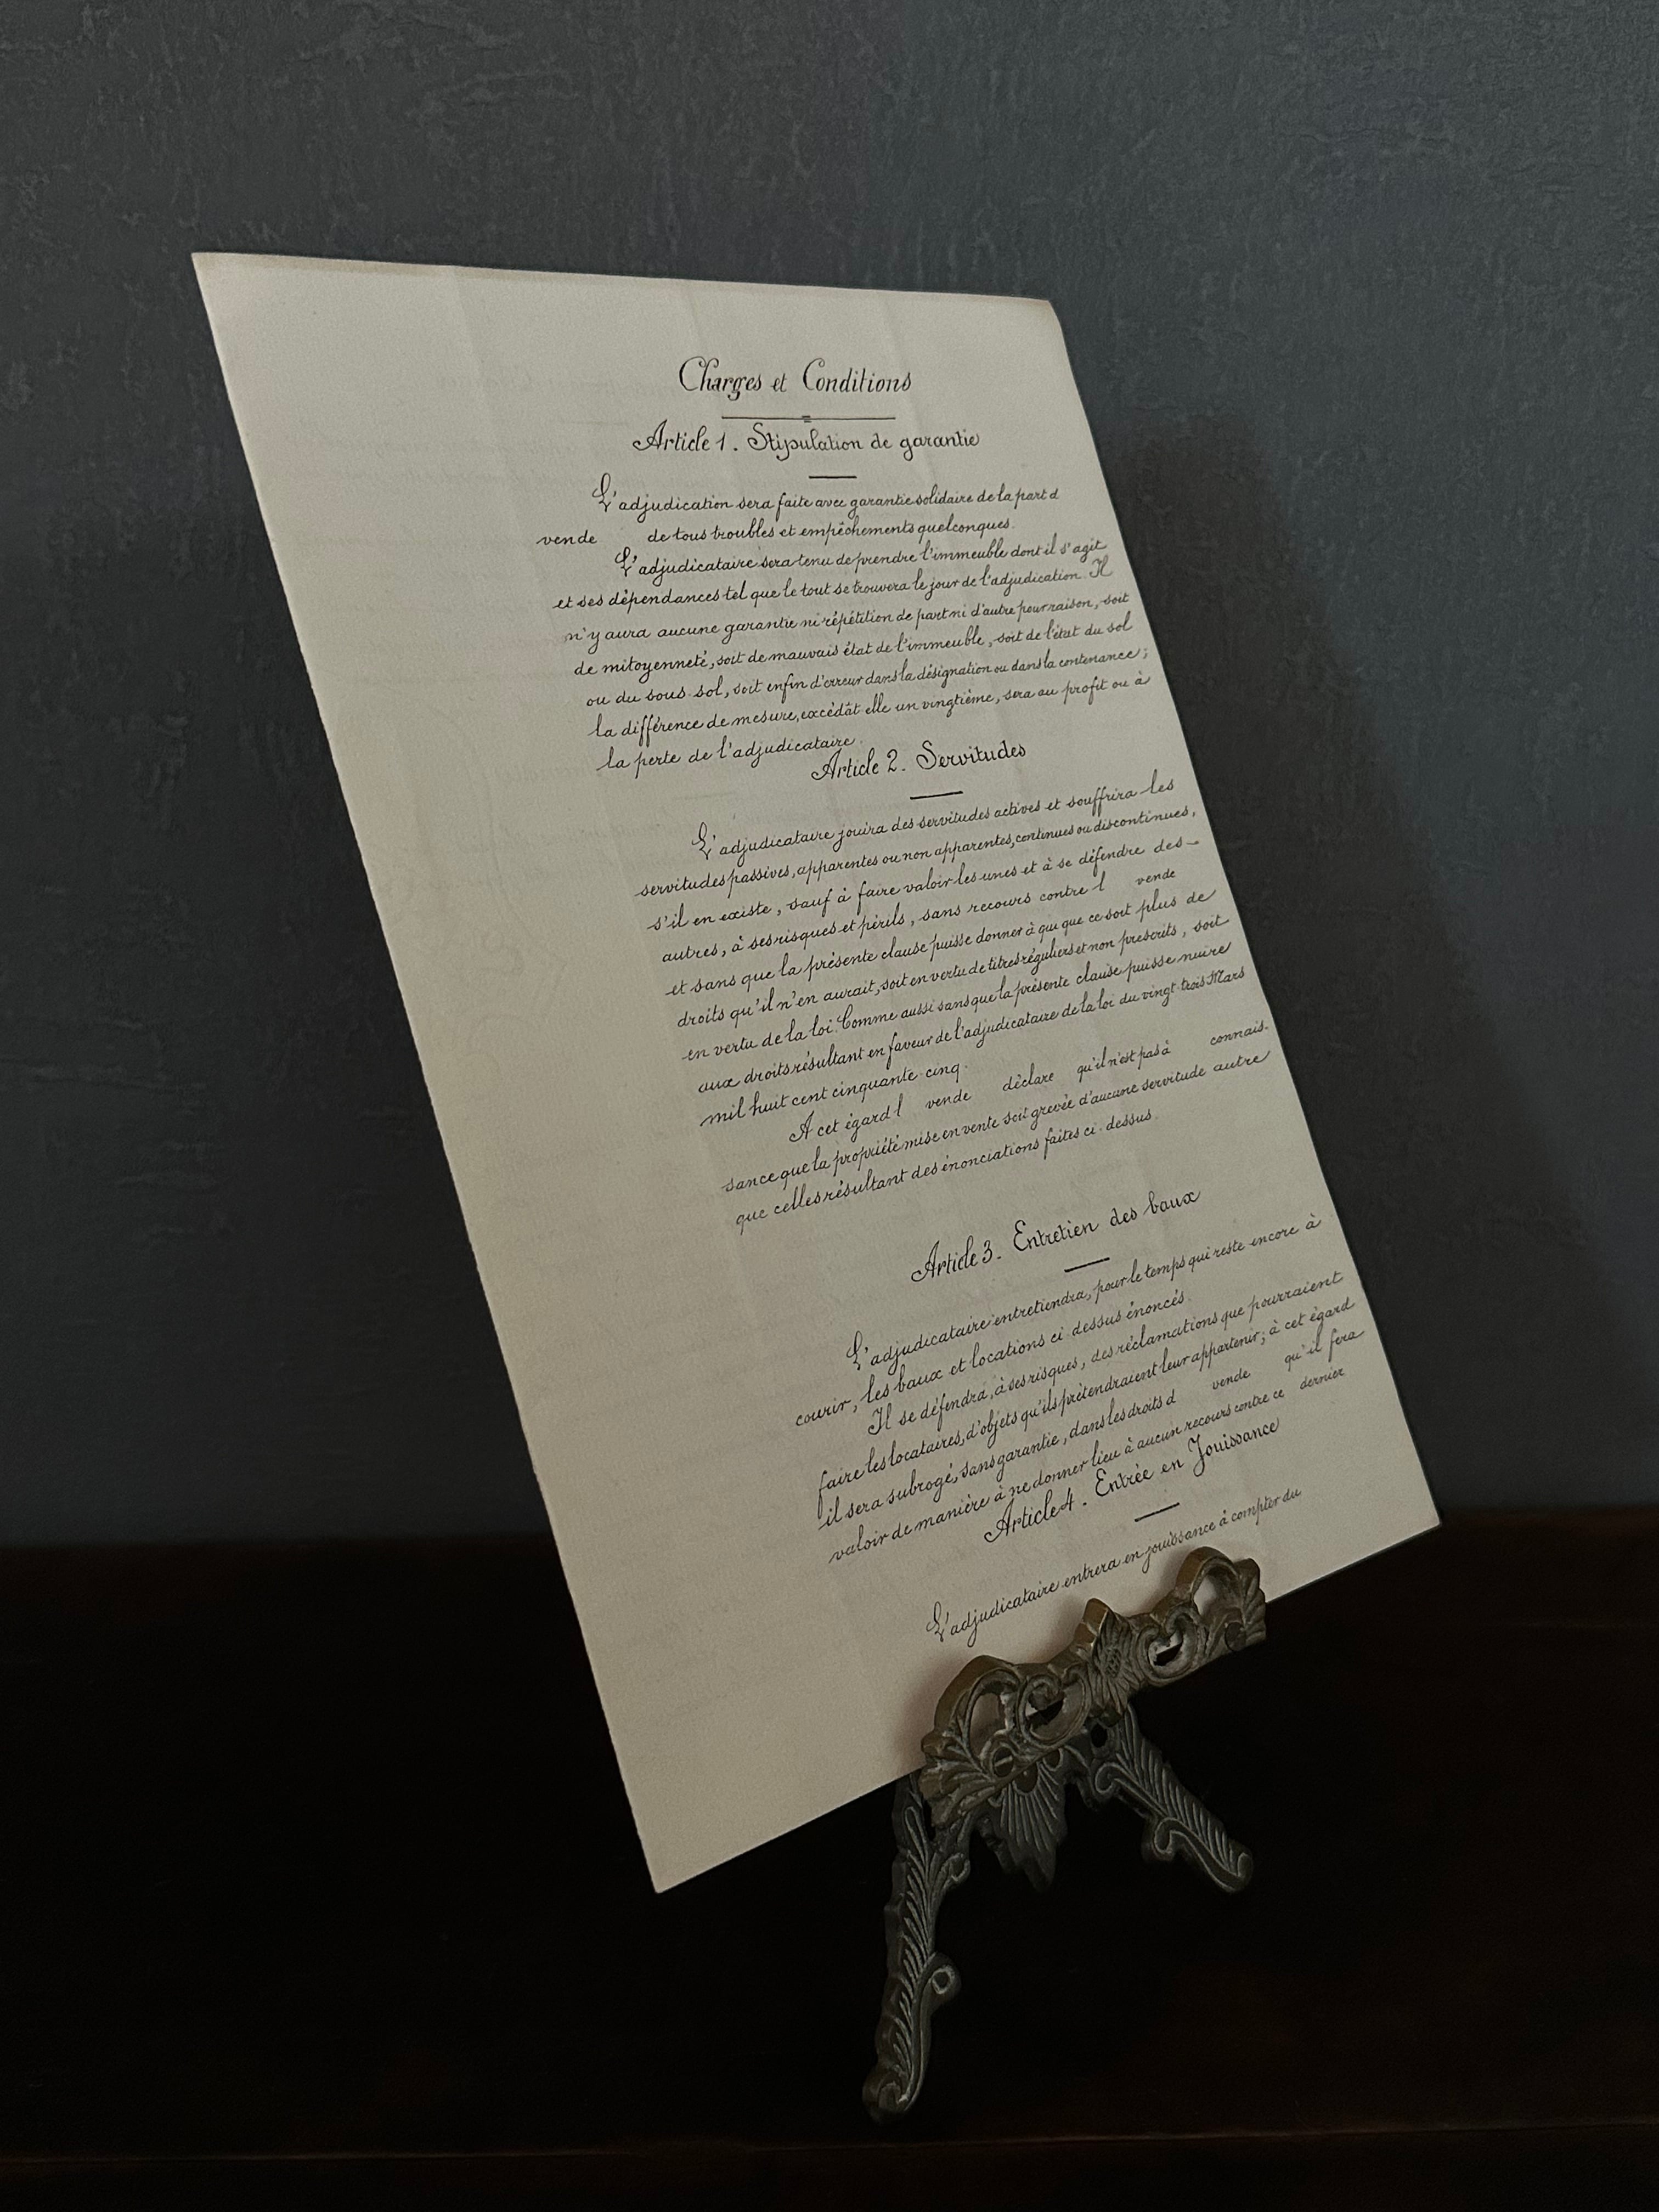 Charges et Conditions
Article 1. Stipulation de garantie
L'adjudication sera faite avec garantie solidaire de la part d
vende de tous troubles et empêchements quelconques.
L'adjudicataire sera tenu de prendre l'immeuble dont il s'agit
et ses dépendances tel que le tout se trouvera le jour de l'adjudication. Il
n'y aura aucune garantie ni répétition de part ni d'autre pour raison, soit
de mitoyenneté, soit de mauvais état de l'immeuble, soit de l'état du sol
ou du sous-sol, soit enfin d'erreur dans la désignation ou dans la contenance;
la différence de mesure, excédât elle un vingtième, sera au profit ou à
la perte de l'adjudicataire.
Article 2. Servitudes
L'adjudicataire jouira des servitudes actives et souffrira les
servitudes passives, apparentes ou non apparentes, continues ou discontinues,
s'il en existe, sauf à faire valoir les unes et à se défendre des
autres, à ses risques et périls, sans recours contre l vende
et sans que la présente clause puisse donner à qui que ce soit plus de
droits qu'il n'en aurait, soit en vertu de titres réguliers et non prescrits, soit
en vertu de la loi. Comme aussi sans que la présente clause puisse nuire
aux droits résultant en faveur de l'adjudicataire de la loi du vingt-trois Mars
mil huit cent cinquante-cinq.
A cet égard l vende déclare qu'il n'est pas à connais-
sance que la propriété mise en vente soit grevée d'aucune servitude autre
que celles résultant des énonciations faites ci-dessus.
Article 3. Entretien des baux
L'adjudicataire entretiendra, pour le temps qui reste encore à
courir, les baux et locations ci-dessus énoncés.
Il se défendra, à ses risques, des réclamations que pourraient
faire les locataires, d'objets qu'ils prétendraient leur appartenir; à cet égard
il sera subrogé, sans garantie, dans les droits d vende qu'il fera
valoir de manière à ne donner lieu à aucun recours contre ce dernier
Article 4. Entrée en Jouissance
L'adjudicataire entrera en jouissance à compter du